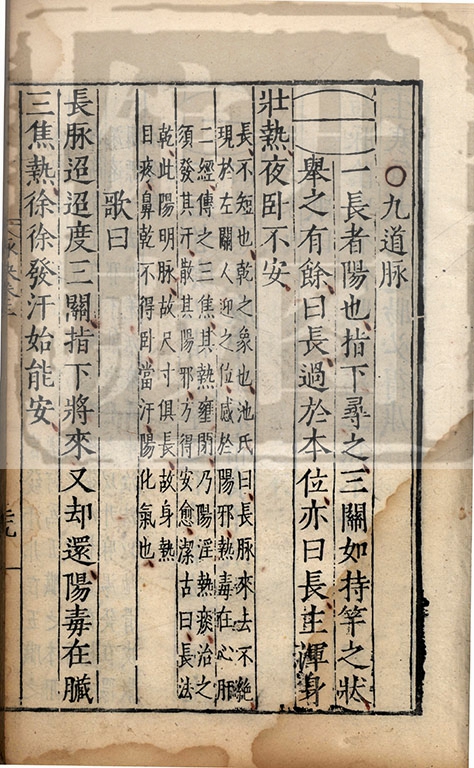 ○九道脉
一長者陽也指下尋之三關如持竿之狀
舉之有餘曰長過於本位亦曰長主渾身
壯熱夜卧不安
長不短也乾之象也池氏曰長脉來去不絶
現於左關人迎之位感於陽邪熱毒在心肝
二經傳之三焦其熱壅閉乃陽淫熱痰治之
須發其汗散其陽邪方得安愈潔古曰長法
乾此陽明脉故尺寸俱長故身熱
目疼鼻乾不得卧當汗陽化氣也
歌曰
長脉迢迢度三關指下將來又却還陽毒在臟
三焦熱徐徐發汗始能安